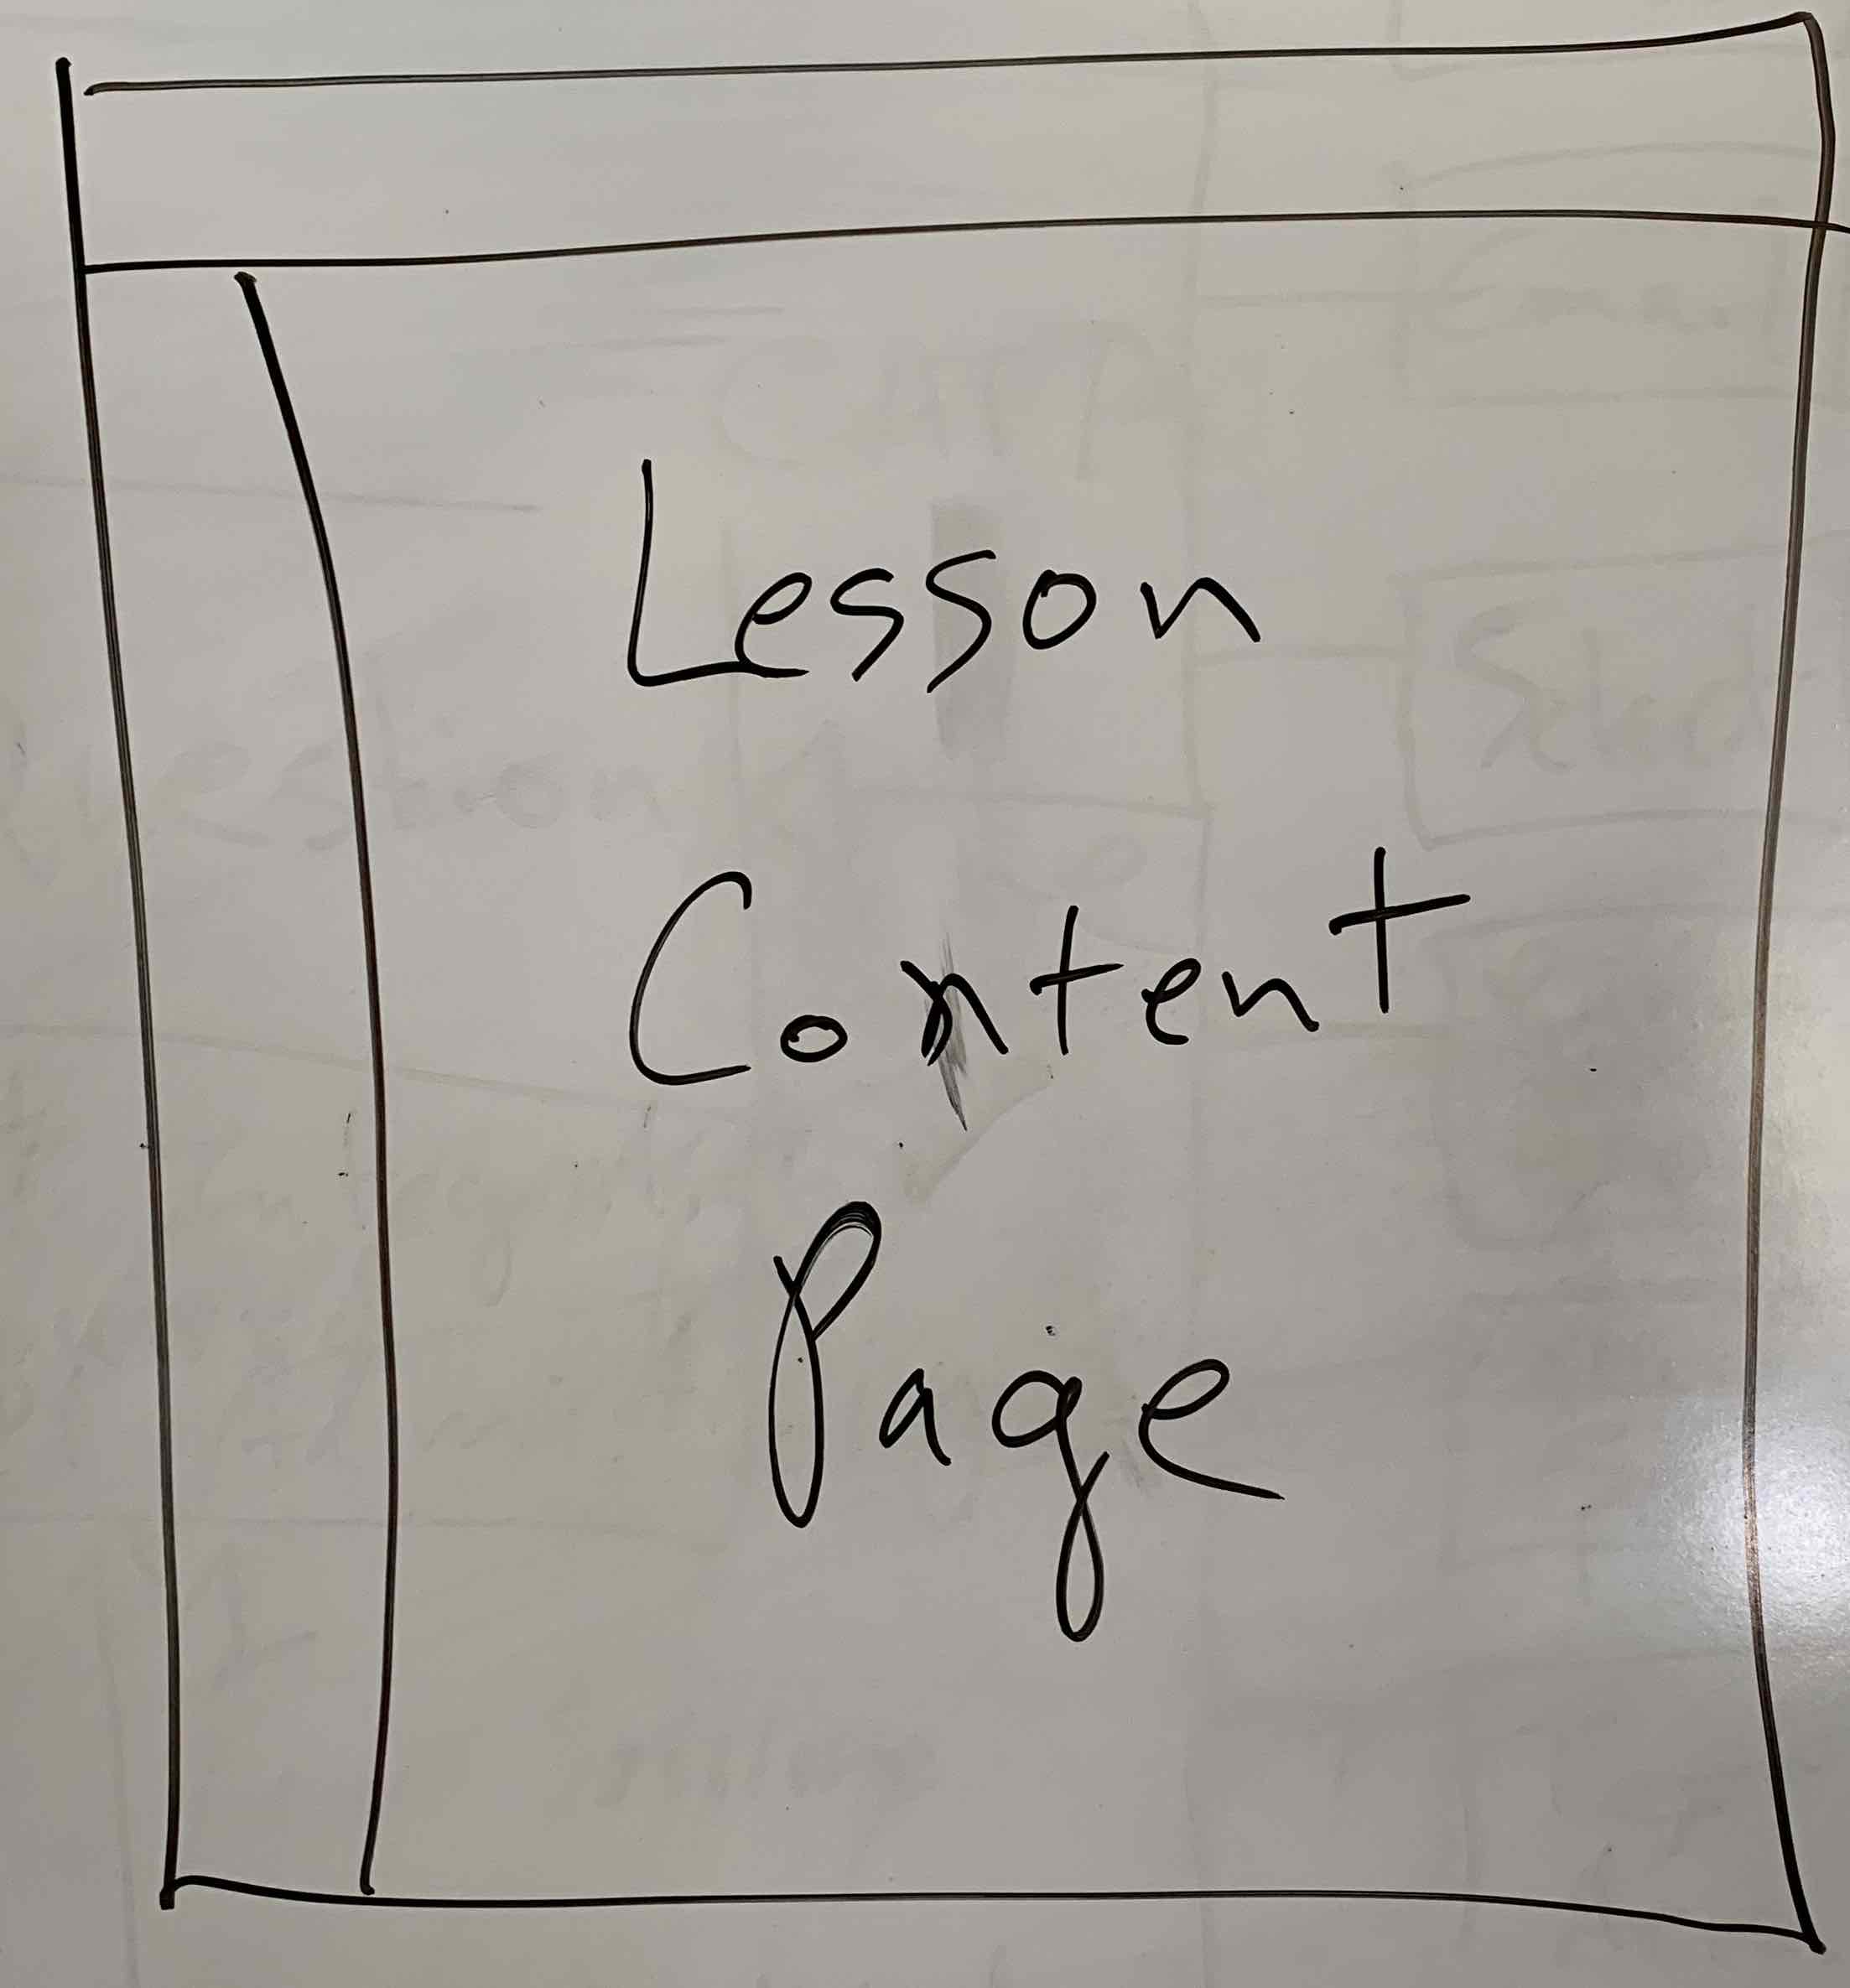 Lesson
Content
Page